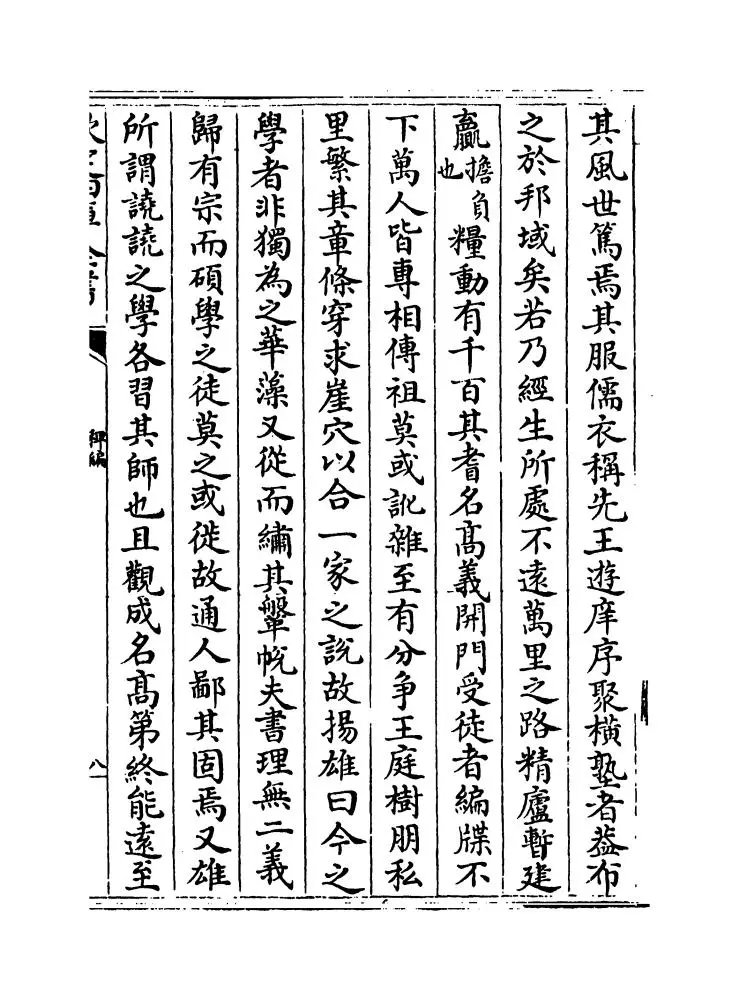 其風世篤焉其服儒衣稱先王遊庠序聚橫塾者葢布
之於邦域矣若乃經生所處不遠萬里之路精廬暫建
贏擔負也糧動有千百其耆名髙義開門受徒者編牒不
下萬人皆專相傳祖莫或訛雜至有分争王庭樹朋私
里繁其章條穿求崖穴以合一家之說故揚雄曰今之
學者非獨為之華藻又從而繡其鞶帨夫書理無二義
歸有宗而碩學之徒莫之或徙故通人鄙其固焉又雄
所謂譊譊之學各習其師也且觀成名髙第終能逺至
欽定四庫全書
稗編
八